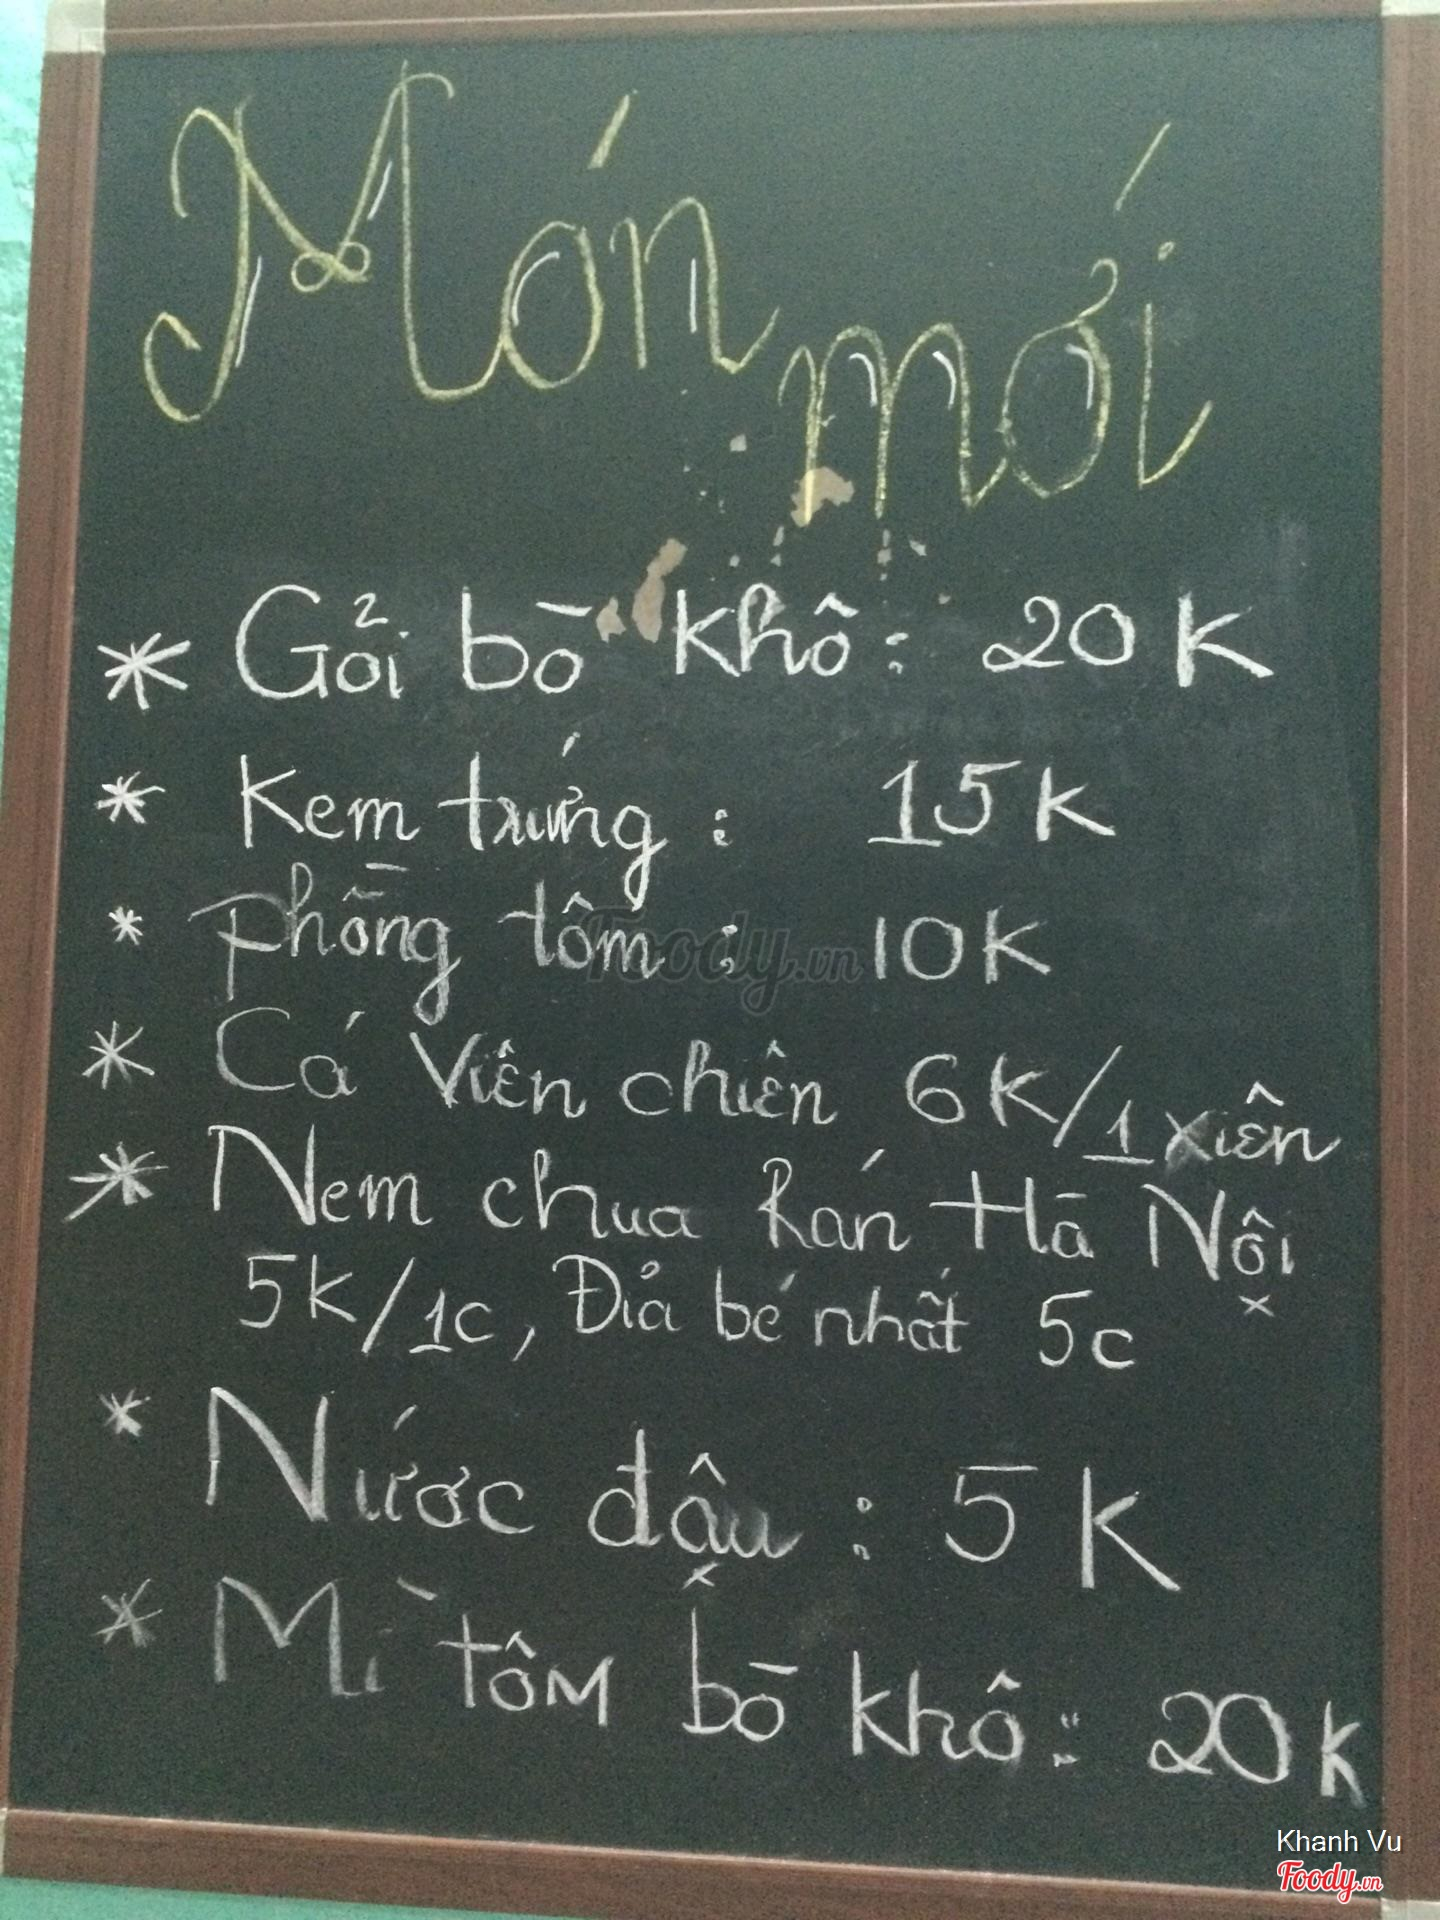 Món mới
* Gỏi bò khô: 20K
* Kem trứng: 15K
* phồng tôm: 10K
* Cá Viên chiên 6K/1 xiên
* Nem chua Rán Hà Nội
5K/1c, Đĩa bé nhất 5c
* Nước đậu: 5K
* Mì tôm bò khô: 20k
Foody.vn
Khanh Vu
Foody.vn